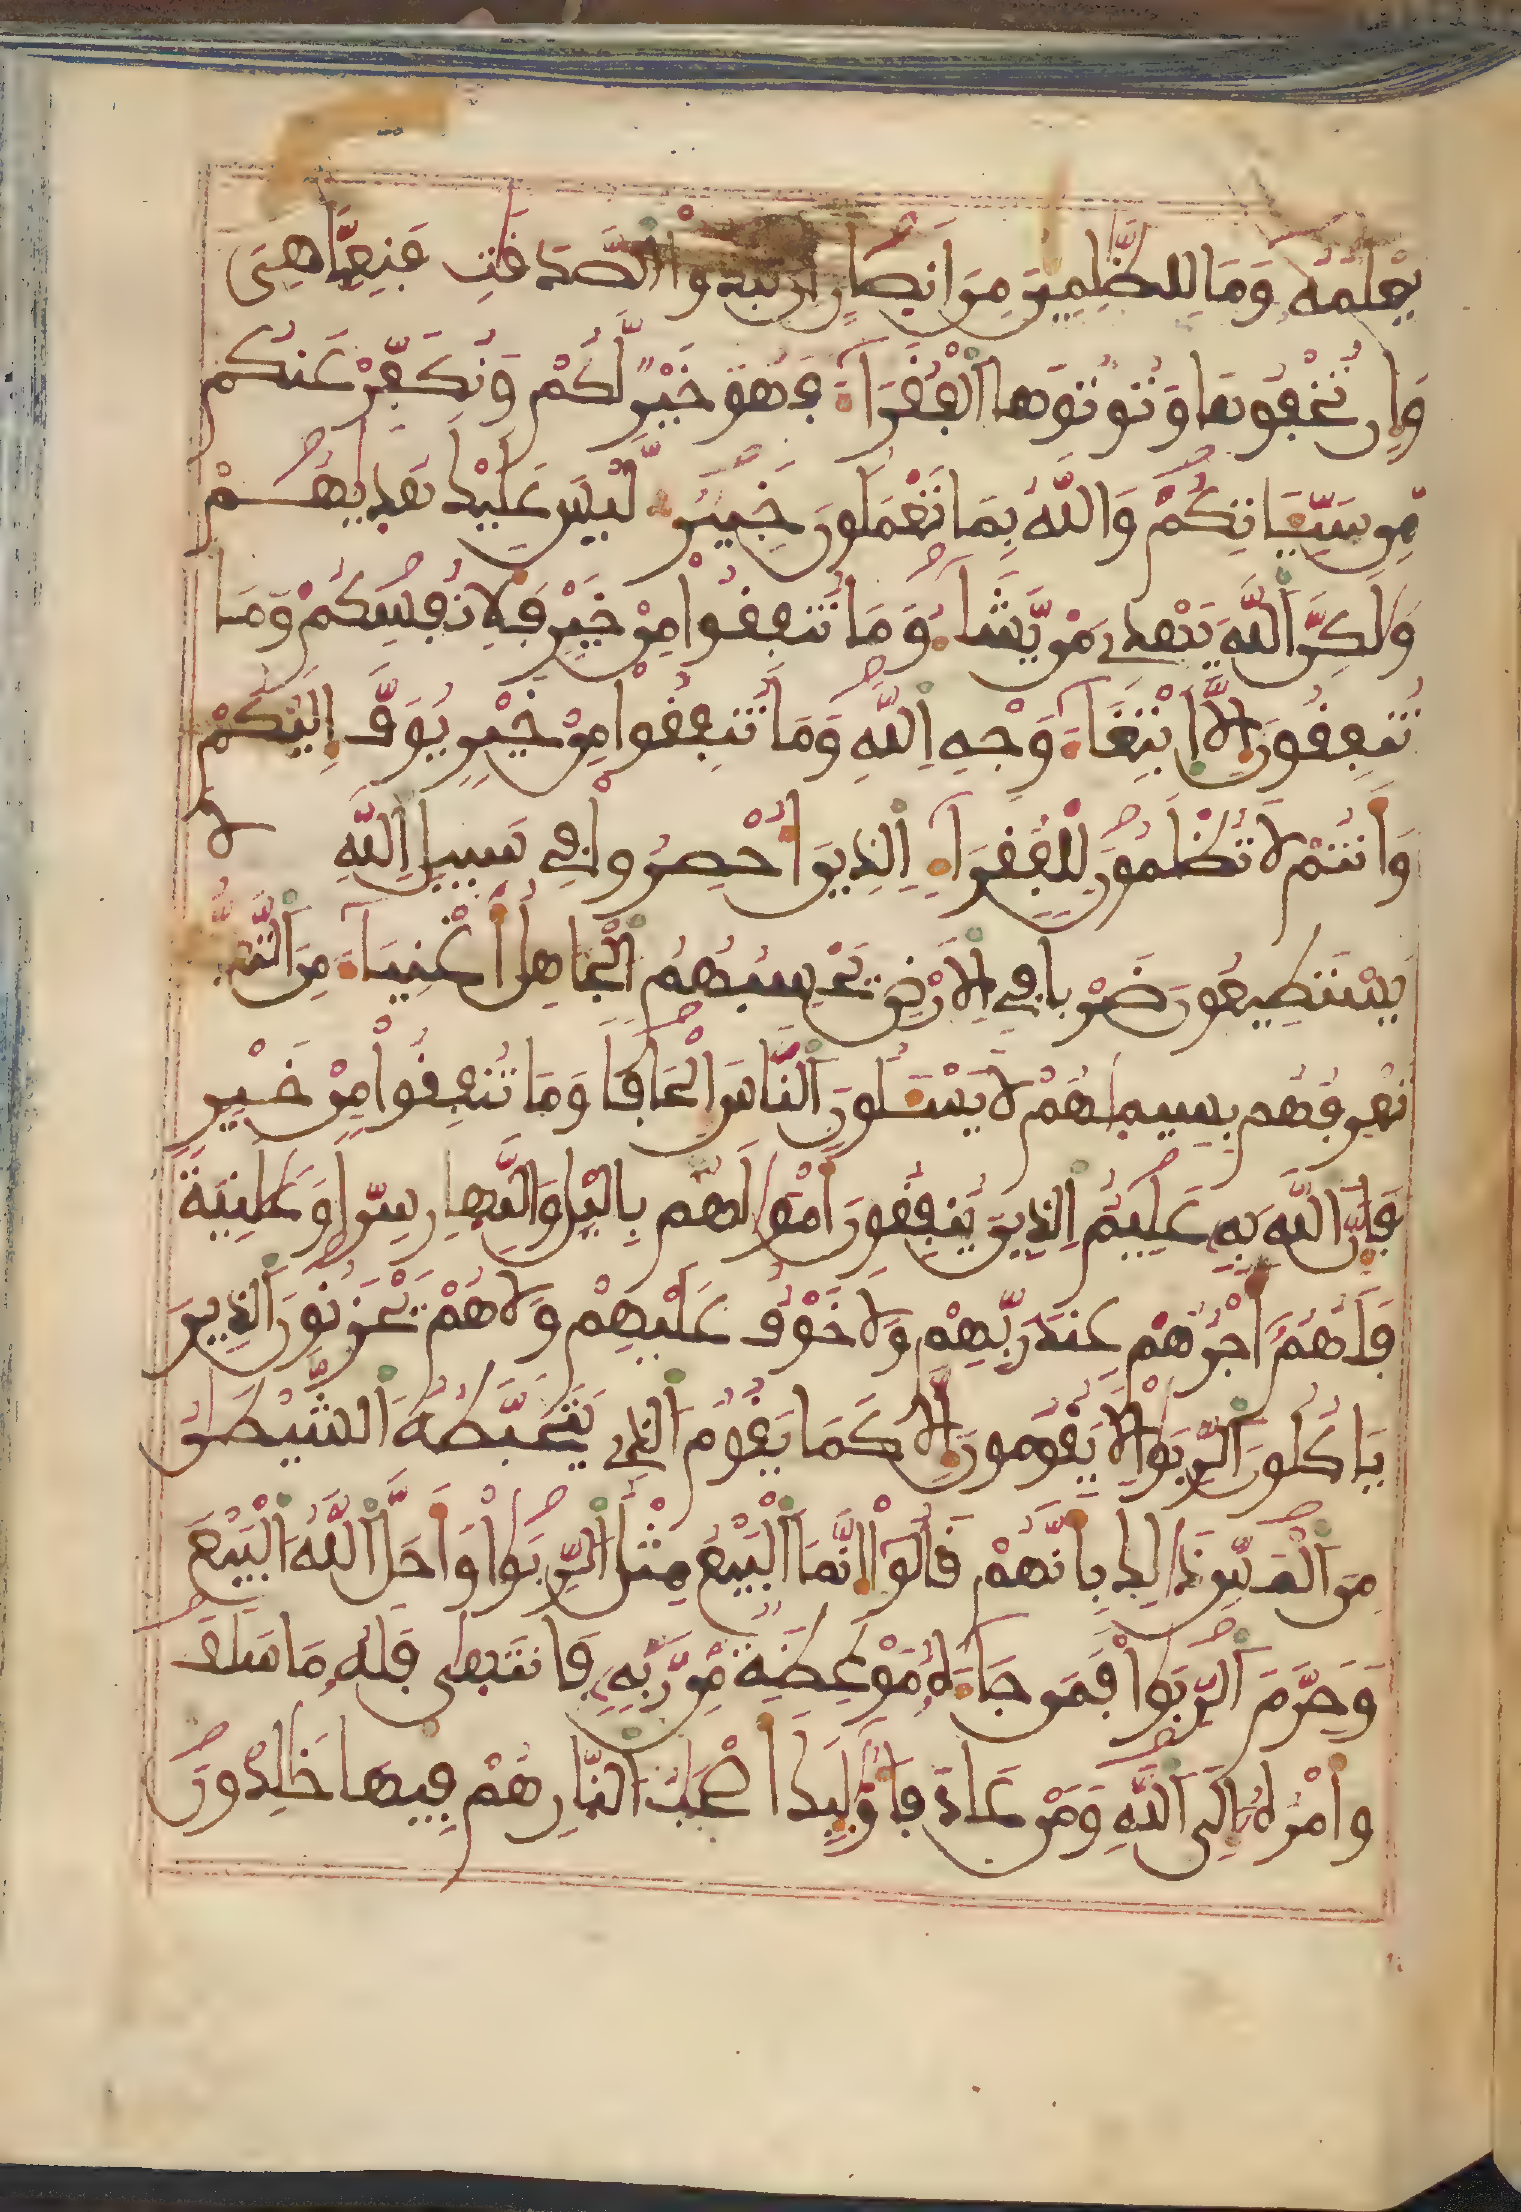 يَعْلَمُهُ وَمَا لِلظَّٰلِمِينَ مِنَ اَنصٰارٍ اِن تُبْدُواْ اُلصَّدَقَٰتِ فَنِعِمَّا هِىَ
وَإِن تُخْفُوهَا وَتُوتُوهَا اَلْفُقَرَآءَ فَهُوَ خَيْرٌ لَّكُمْ وَنُكَفِّرْ عَنكُم
مِّن سَيِّـَٔاتِكُمْ وَاللَّهُ بِمَا تَعْمَلُونَ خَبِيرٌ لَّيْسَ عَلَيْكَ هُدَيٰهُمْ
وَلَٰكِنَّ اَللَّهَ يَهْدِے مَنْ يَّشَآءُ وَمَا تُنفِقُواْ مِنْ خَيْرٍ فَلِأَنفُسِكُمْ وَمَا
تُنفِقُونَ إِلَّا اَبْتِغَآءَ وَجْهِ اِللَّهِ وَمَا تُنفِقُواْ مِنْ خَيْرٍ يُوَفَّ إِلَيْكُمْ
وَأَنتُمْ لَا تُظْلَمُونَ لِلْفُقَرَآءِ اِلذِينَ أُحْصِرُواْ فِي سَبِيلِ اِللَّهِ لَا
يَسْتَطِيعُونَ ضَرْبا فِي اِلْأَرْضِ يَحْسِبُهُمُ اُلْجَاهِلُ أَغْنِيَآءَ مِنَ اَلتَّعَفُّفِ
تَعْرِفُهُم بِسِيمٰهُمْ لَا يَسْـَٔلُونَ اَلنَّاسَ إِلْحَافا وَمَا تُنفِقُواْ مِنْ خَيْرٍ
فَإِنَّ اَللَّهَ بِهِ عَلِيمٌ اِلذِينَ يُنفِقُونَ أَمْوَٰلَهُم بِاليْلِ وَالنَّهَارِ سِرّا وَعَلَٰنِيَةً
فَلَهُمُ أَجْرُهُمْ عِندَ رَبِّهِمْ وَلَا خَوْفٌ عَلَيْهِمْ وَلَا هُمْ يَحْزَنُونَ اَلذِينَ
يَاكُلُونَ اَلرِّبَوٰاْ لَا يَقُومُونَ إِلَّا كَمَا يَقُومُ اُلذِے يَتَخَبَّطُهُ اُلشَّيْطَٰنُ
مِنَ اَلْمَسِّ ذَٰلِكَ بِأَنَّهُمْ قَالُواْ إِنَّمَا اَلْبَيْعُ مِثْلُ اُلرِّبَوٰاْ وَأَحَلَّ اَللَّهُ اُلْبَيْعَ
وَحَرَّمَ اَلرِّبَوٰاْ فَمَن جَآءَهُ مَوْعِظَةٌ مِّن رَّبِّهِ فَانتَهىٰ فَلَهُ مَا سَلَفَ
وَأَمْرُهُ إِلَى اَللَّهِ وَمَنْ عَادَ فَأُوْلَٰٓئِكَ أَصْحَٰبُ اُلنَّارِ هُمْ فِيهَا خَٰلِدُونَ